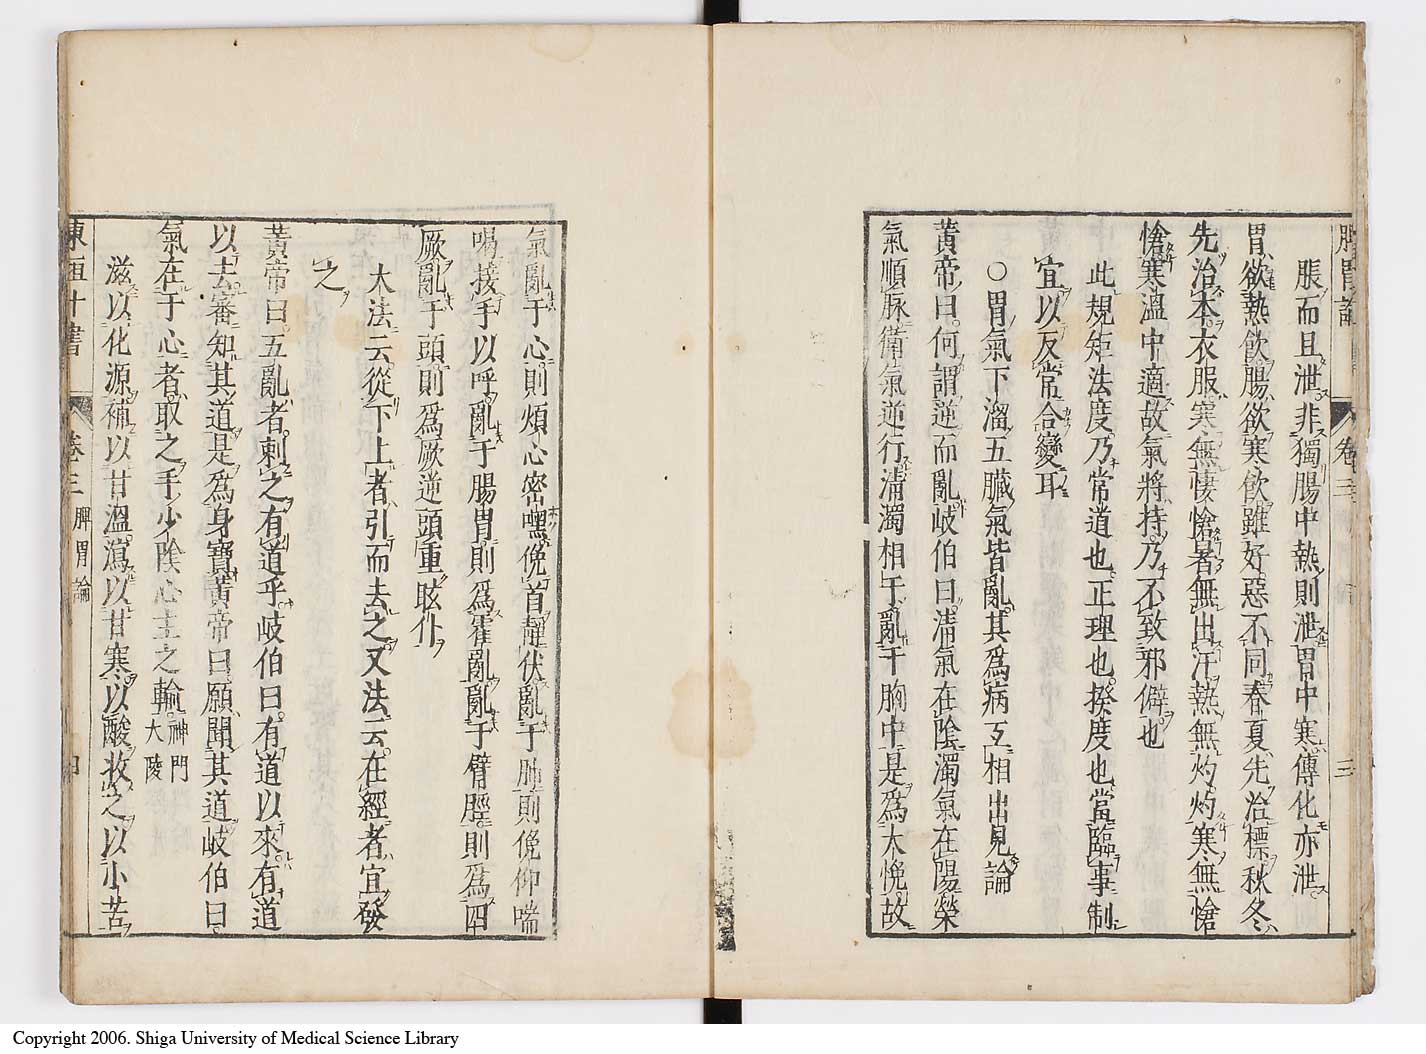 脾胃論
卷三
三
脹而且泄非獨腸中熱則泄胃中寒傳化亦泄
胃欲熱飮腸欲寒飮雖好惡不同春夏先治標秋冬
先治本衣服寒無悽愴暑無出汗熱無灼灼寒無愴
愴寒溫中適故氣將持乃不致邪僻也
此規矩法度乃常道也正理也揆度也當臨事制
宜以反常合變耳
○胃氣下溜五臟氣皆亂其爲病互相出見論
黃帝曰何謂逆而亂岐伯曰淸氣在陰濁氣在陽榮
氣順脉衛氣逆行淸濁相干亂于胸中是爲大悗故
氣亂于心則煩心密嘿俛首靜伏亂于肺則俛仰喘
喝接手以呼亂于腸胃則爲霍亂亂于臂脛則爲四
厥亂于頭則爲厥逆頭重眩仆
大法云從下上者引而去之又法云在經者宜發
之
黃帝曰五亂者刺之有道乎岐伯曰有道以來有道
以去審知其道是爲身寶黃帝曰願聞其道岐伯曰
氣在于心者取之手少陰心主之輸神門大陵
滋以化源補以甘溫瀉以甘寒以酸收之以小苦
東垣十書
卷三 脾胃論
四
Copyright 2006. Shiga University of Medical Science Library